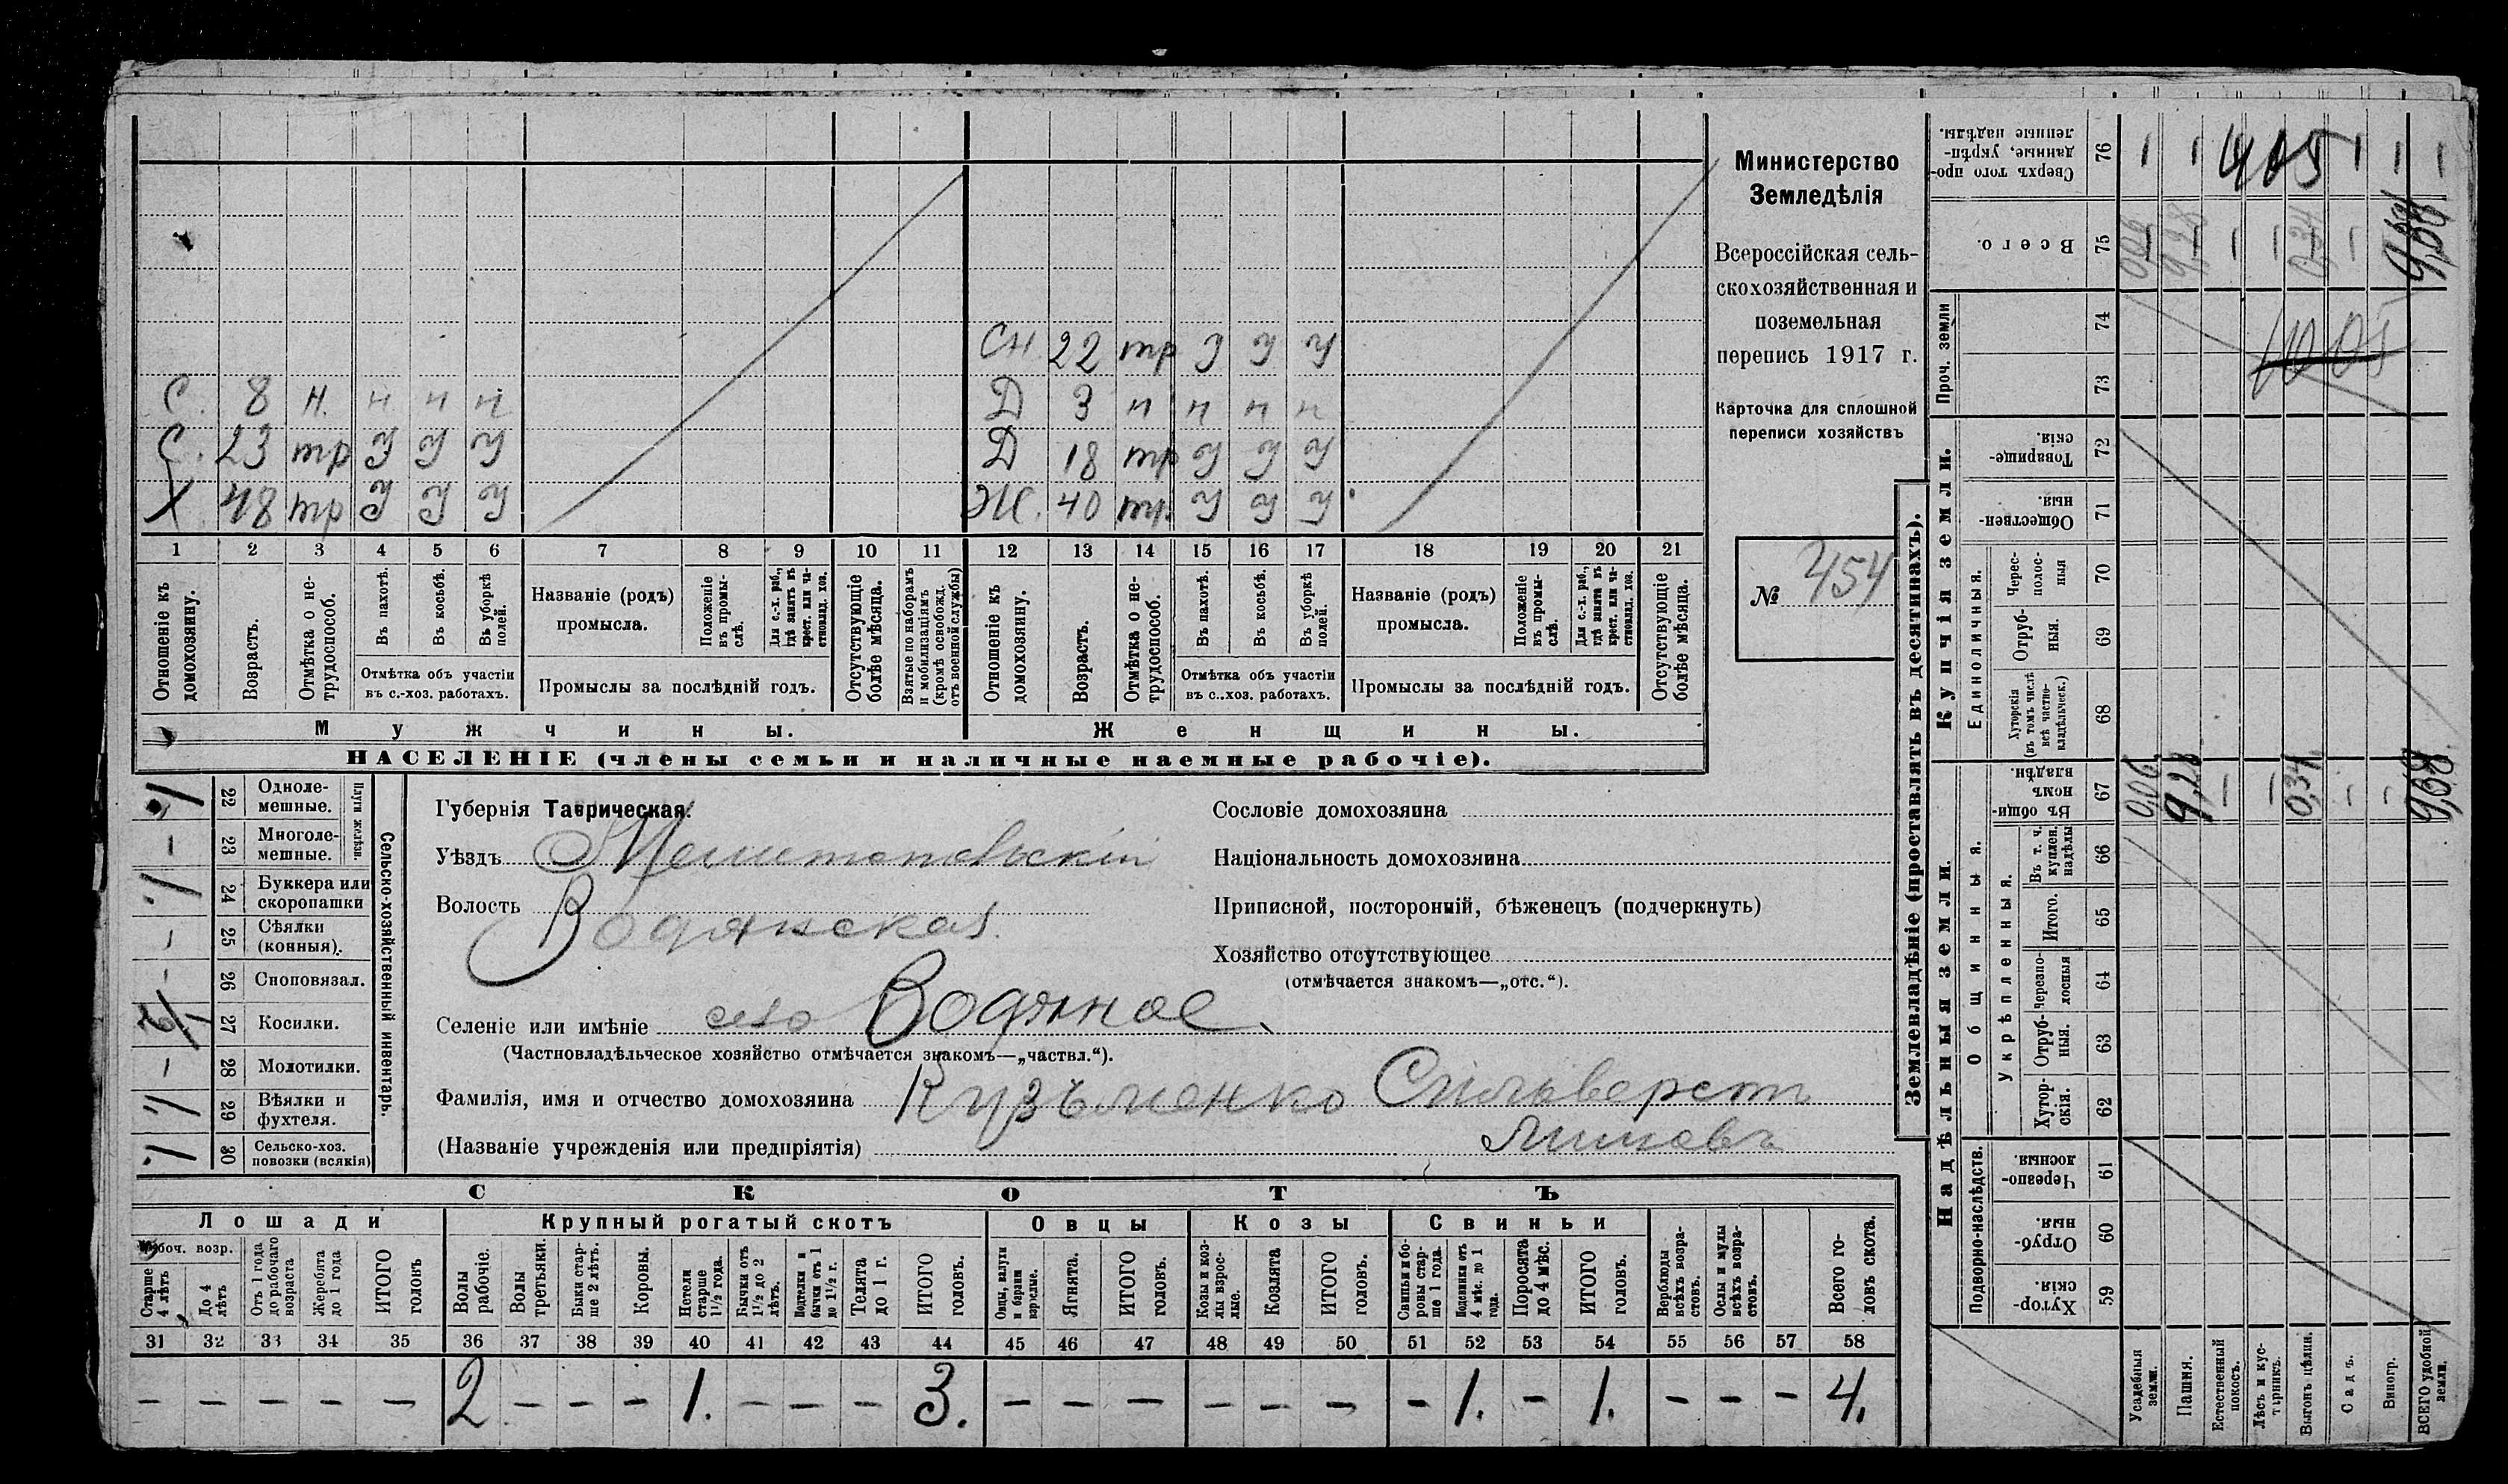 С. 8 н. н н н
С. 23 тр У У У
Х 48 тр У У У
СН. 22 тр У У У
Д 3 н н н н
Д 18 тр У У У
Ж. 40 тр. У У У
1 2 3 4 5 6 7 8 9 10 11 12 13 14 15 16 17 18 19 20 21
Отношеніе къ домохозяину.
Возрастъ.
Отмѣтка о не-трудоспособ.
Въ пахотѣ.
Въ косьбѣ.
Въ уборкѣ полей.
Отмѣтка объ участіи въ с.-хоз. работахъ.
Названіе (родъ) промысла.
Положеніе въ промы-слѣ.
Для с.-х. раб., гдѣ занятъ въ крест. или ча-стновлад. хоз.
Промыслы за послѣдній годъ.
Отсутствующіе болѣе мѣсяца.
Взятые по наборамъ и мобилизаціямъ (кромѣ освобожд. отъ военной службы)
Отношеніе къ домохозяину.
Возрастъ.
Отмѣтка о не-трудоспособ.
Въ пахотѣ.
Въ косьбѣ.
Въ уборкѣ полей.
Отмѣтка объ участіи въ с.-хоз. работахъ.
Названіе (родъ) промысла.
Положеніе въ промы-слѣ.
Для с.-х. раб., гдѣ занята въ крест. или ча-стновлад. хоз.
Промыслы за послѣдній годъ.
Отсутствующіе болѣе мѣсяца.
Мужчины.
Женщины.
НАСЕЛЕНІЕ (члены семьи и наличные наемные рабочіе).
Министерство
Земледѣлія
Всероссійская сель-
скохозяйственная и
поземельная
перепись 1917 г.
Карточка для сплошной
переписи хозяйствъ
№ 454
Сельско-хозяйственный инвентарь.
Плуги желѣзн.
22 Одноле-мешные.
— 23 Многоле-мешные.
24 Буккера или скоропашки
— 25 Сѣялки (конныя).
— 26 Сноповязал.
27 Косилки.
— 28 Молотилки.
29 Вѣялки и фухтеля.
30 Сельско-хоз. повозки (всякія)
Губернія Таврическая.
Уѣздъ Мелитопольскій
Волость Водянская
Селеніе или имѣніе село Водяное.
(Частновладѣльческое хозяйство отмѣчается знакомъ—„частвл.“).
Фамилія, имя и отчество домохозяина Кузьменко Сильверстъ
(Названіе учрежденія или предпріятія)
Сословіе домохозяина
Національность домохозяина
Приписной, посторонній, бѣженецъ (подчеркнуть)
Хозяйство отсутствующее
(отмѣчается знакомъ—„отс.“).
СКОТЪ
Лошади
Крупный рогатый скотъ
Овцы
Козы
Свиньи
Рабоч. возр.
Старше 4 лѣтъ
До 4 лѣтъ
Отъ 1 года до рабочаго возраста
Жеребята до 1 года
ИТОГО головъ
Волы рабочіе.
Волы третьяки.
Быки стар-ше 2 лѣтъ.
Коровы.
Нетели старше 1½ года.
Бычки отъ 1½ до 2 лѣтъ.
Подтелки и бычки отъ 1 до 1½ г.
Телята до 1 г.
ИТОГО головъ.
Овцы, валухи и бараны взрослые.
Ягнята.
ИТОГО головъ.
Козы и коз-лы взрос-лые.
Козлята
ИТОГО головъ.
Свиньи и бо-ровы стар-ше 1 года.
Подсвинки отъ 4 мѣс. до 1 года.
Поросята до 4 мѣс.
ИТОГО головъ.
Верблюды всѣхъ возра-стовъ.
Ослы и мулы всѣхъ возра-стовъ.
Всего го-ловъ скота.
31 32 33 34 35 36 37 38 39 40 41 42 43 44 45 46 47 48 49 50 51 52 53 54 55 56 57 58
— — — — — 2 — — — 1. — — — 3. — — — — — — — 1. — 1. — — — 4.
Землевладѣніе (проставлять въ десятинахъ).
Надѣльныя земли.
Купчія земли.
Проч. земли
Подворно-наслѣдств.
Общинныя.
Укрѣпленныя.
Единоличныя.
Сверхъ того про-данные, укрѣп-ленные надѣлы. 76
Всего. 75
74
73
Товарище-скія. 72
Обществен-ныя. 71
Черес-полос-ныя 70
Отруб-ныя. 69
Хуторскія (въ томъ числѣ всѣ частно-владѣльческ.) 68
Въ общи-номъ владѣн. 67
Въ т. ч. куплен. надѣлы 66
Итого. 65
Черезпо-лосныя 64
Отруб-ныя. 63
Хутор-скія. 62
Черезпо-лосныя. 61
Отруб-ныя. 60
Хутор-скія. 59
405
0,06 9,28 0,34
10 05
0,06 9,28 — — 0,34 — — 9,68
Усадебныя земли.
Пашня.
Естественный покосъ.
Лѣсъ и кус-тарникъ.
Выгонъ цѣлин.
Садъ.
Виногр.
ВСЕГО удобной земли.